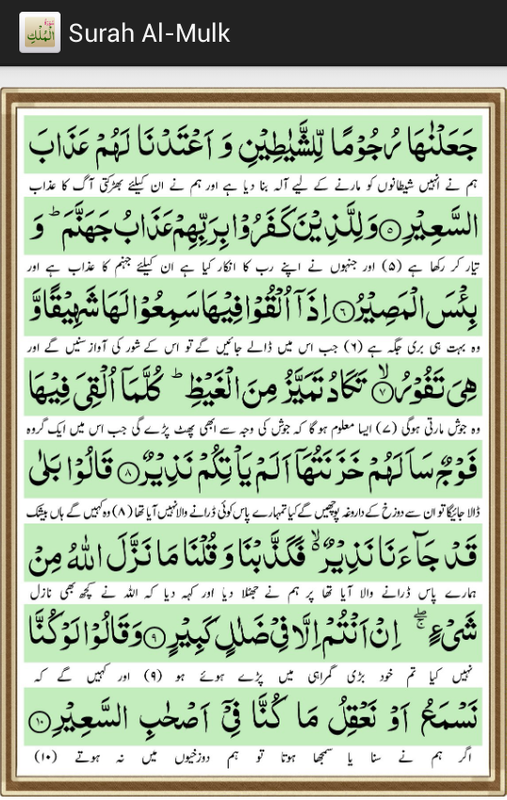 Surah Al-Mulk
جَعَلْنٰهَا رُجُوْمًا لِّلشَّيٰطِيْنِ وَ اَعْتَدْنَا لَهُمْ عَذَابَ
ہم نے انہیں شیطانوں کو مارنے کے لیے آلہ بنا دیا ہے اور ہم نے ان کیلئے بھڑکتی آگ کا عذاب
السَّعِيْرِ ۝۵ وَ لِلَّذِيْنَ كَفَرُوْا بِرَبِّهِمْ عَذَابُ جَهَنَّمَ ؕ وَ
تیار کر رکھا ہے (۵) اور جنہوں نے اپنے رب کا انکار کیا ہے ان کیلئے جہنم کا عذاب ہے اور
بِئْسَ الْمَصِيْرُ ۝۶ اِذَاۤ اُلْقُوْا فِيْهَا سَمِعُوْا لَهَا شَهِيْقًا وَّ
وہ بہت ہی بری جگہ ہے (۶) جب اس میں ڈالے جائیں گے تو اس کے شور کی آواز سنیں گے اور
هِيَ تَفُوْرُ ۝۷ۙ تَكَادُ تَمَيَّزُ مِنَ الْغَيْظِ ؕ كُلَّمَاۤ اُلْقِيَ فِيْهَا
وہ جوش مارتی ہوگی (۷) ایسا معلوم ہو گا کہ جوش کی وجہ سے ابھی پھٹ پڑے گی جب اس میں ایک گروہ
فَوْجٌ سَاَلَهُمْ خَزَنَتُهَاۤ اَلَمْ يَاْتِكُمْ نَذِيْرٌ ۝۸ قَالُوْا بَلٰى
ڈالا جائیگا تو ان سے دوزخ کے داروغہ پوچھیں گے کیا تمہارے پاس کوئی ڈرانے والا نہیں آیا تھا (۸) وہ کہیں گے ہاں بیشک
قَدْ جَآءَنَا نَذِيْرٌ ۙ۬ فَكَذَّبْنَا وَ قُلْنَا مَا نَزَّلَ اللّٰهُ مِنْ
ہمارے پاس ڈرانے والا آیا تھا پر ہم نے جھٹلا دیا اور کہہ دیا کہ اللہ نے کچھ بھی نازل
شَيْءٍ ۖۚ اِنْ اَنْتُمْ اِلَّا فِيْ ضَلٰلٍ كَبِيْرٍ ۝۹ وَ قَالُوْا لَوْ كُنَّا
نہیں کیا تم خود بڑی گمراہی میں پڑے ہوئے ہو (۹) اور کہیں گے کہ
نَسْمَعُ اَوْ نَعْقِلُ مَا كُنَّا فِيْۤ اَصْحٰبِ السَّعِيْرِ ۝۱۰
اگر ہم نے سنا یا سمجھا ہوتا تو ہم دوزخیوں میں نہ ہوتے (۱۰)